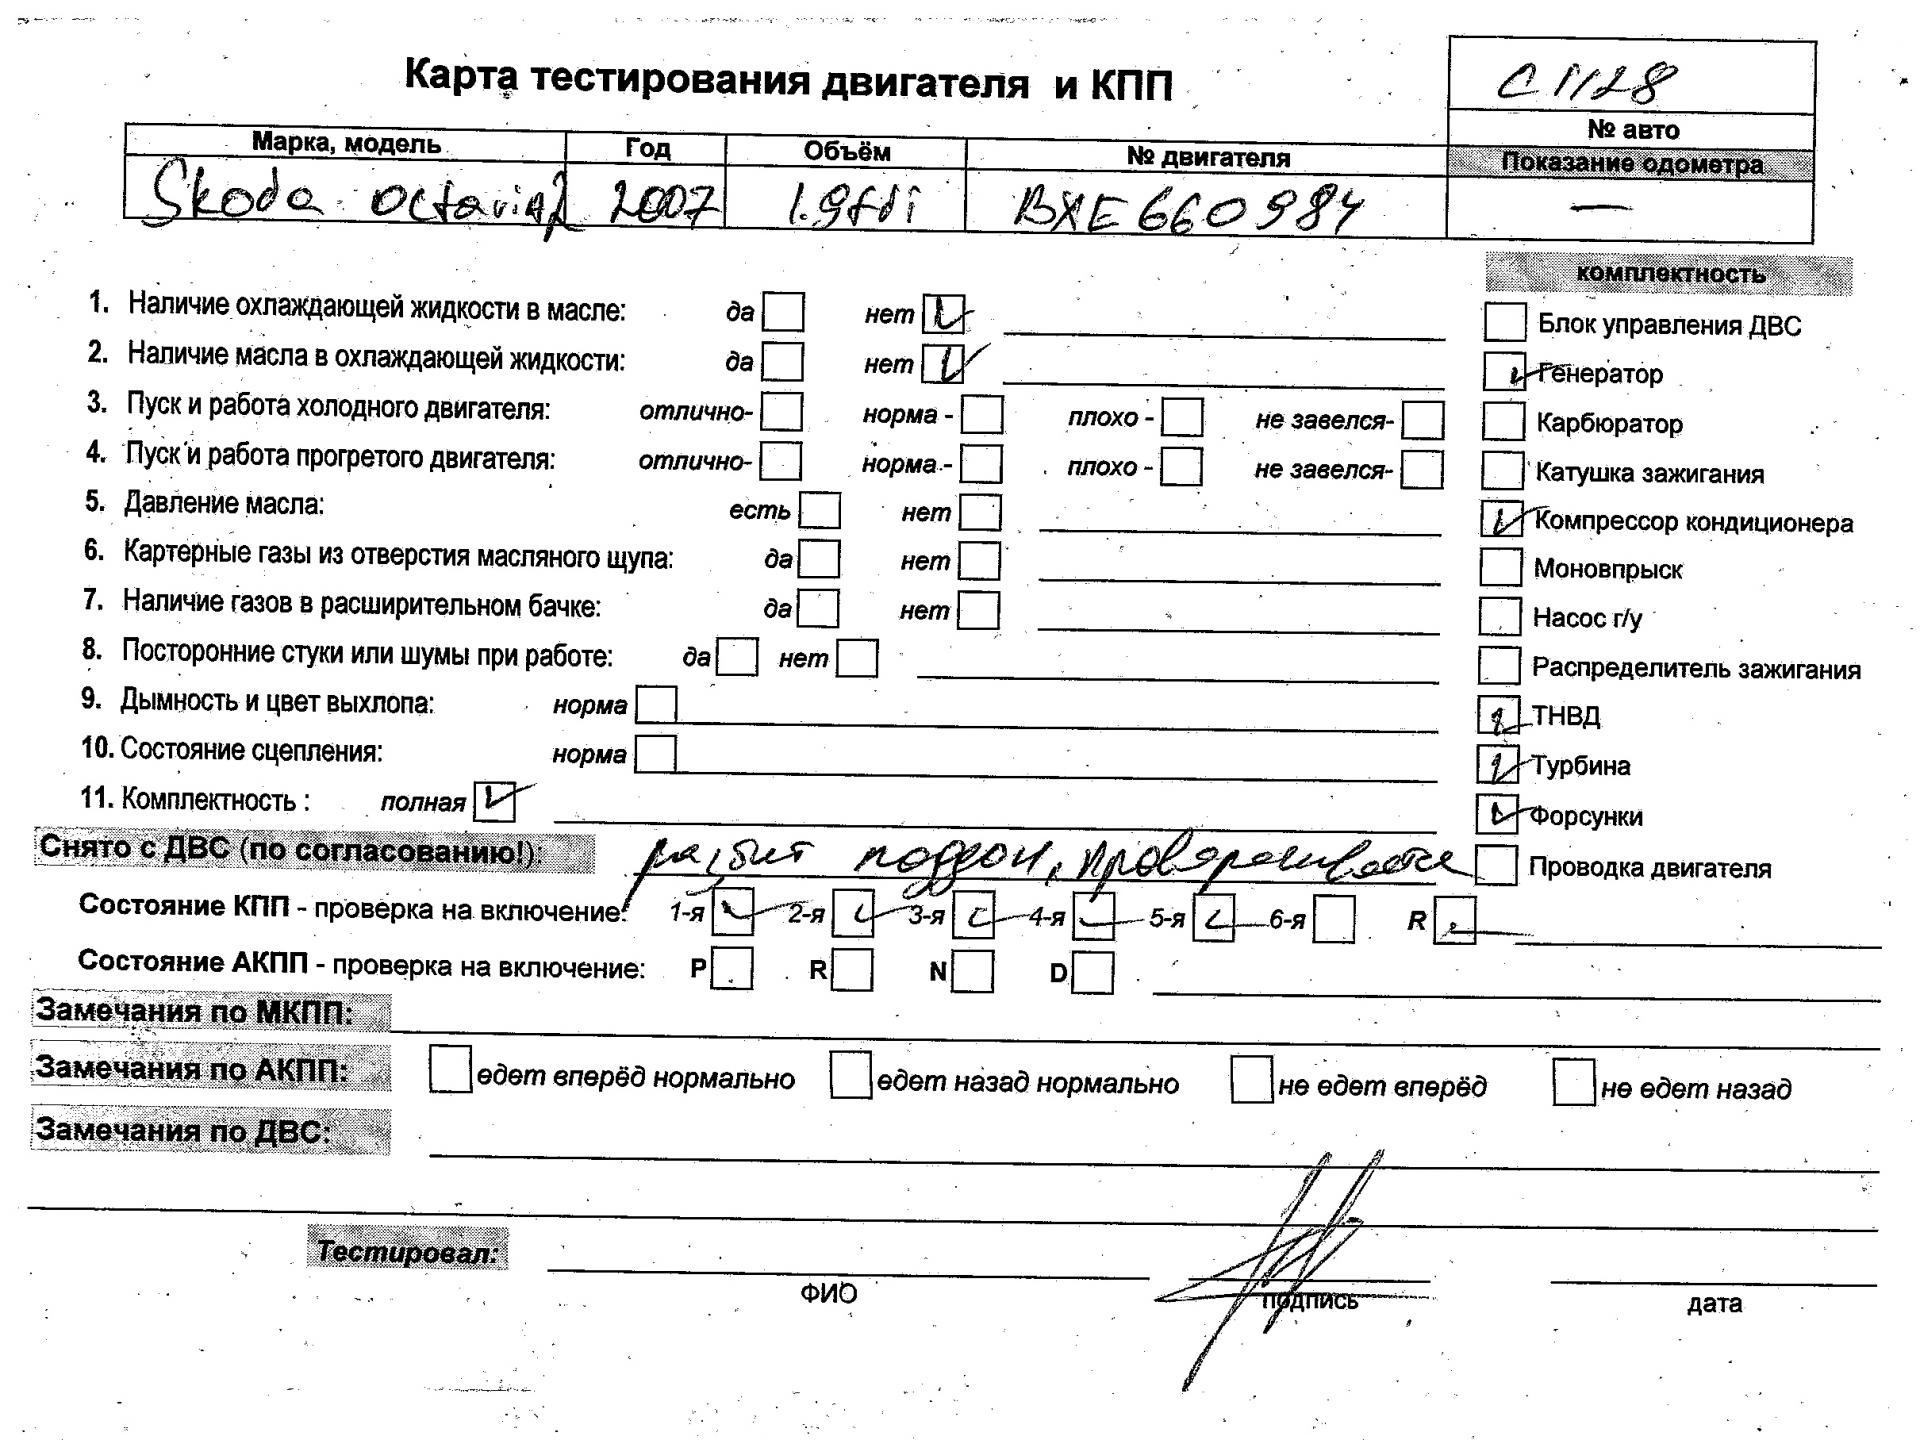 Карта тестирования двигателя и КПП
С1128
№ авто
Марка, модель Год Объём № двигателя Показание одометра
Skoda octavia 2 2007 1.9tdi BXE660984 —
комплектность
1. Наличие охлаждающей жидкости в масле: да нет
Блок управления ДВС
2. Наличие масла в охлаждающей жидкости: да нет
Генератор
3. Пуск и работа холодного двигателя: отлично- норма - плохо - не завелся-
Карбюратор
4. Пуск и работа прогретого двигателя: отлично- норма - плохо - не завелся-
Катушка зажигания
5. Давление масла: есть нет
Компрессор кондиционера
6. Картерные газы из отверстия масляного щупа: да нет
Моновпрыск
7. Наличие газов в расширительном бачке: да нет
Насос г/у
8. Посторонние стуки или шумы при работе: да нет
Распределитель зажигания
9. Дымность и цвет выхлопа: норма
ТНВД
10. Состояние сцепления: норма
Турбина
11. Комплектность : полная
Форсунки
Снято с ДВС (по согласованию!): разбит поддон, проворачивается
Проводка двигателя
Состояние КПП - проверка на включение: 1-я 2-я 3-я 4-я 5-я 6-я R
Состояние АКПП - проверка на включение: P R N D
Замечания по МКПП:
Замечания по АКПП: едет вперёд нормально едет назад нормально не едет вперёд не едет назад
Замечания по ДВС:
Тестировал:
ФИО подпись дата